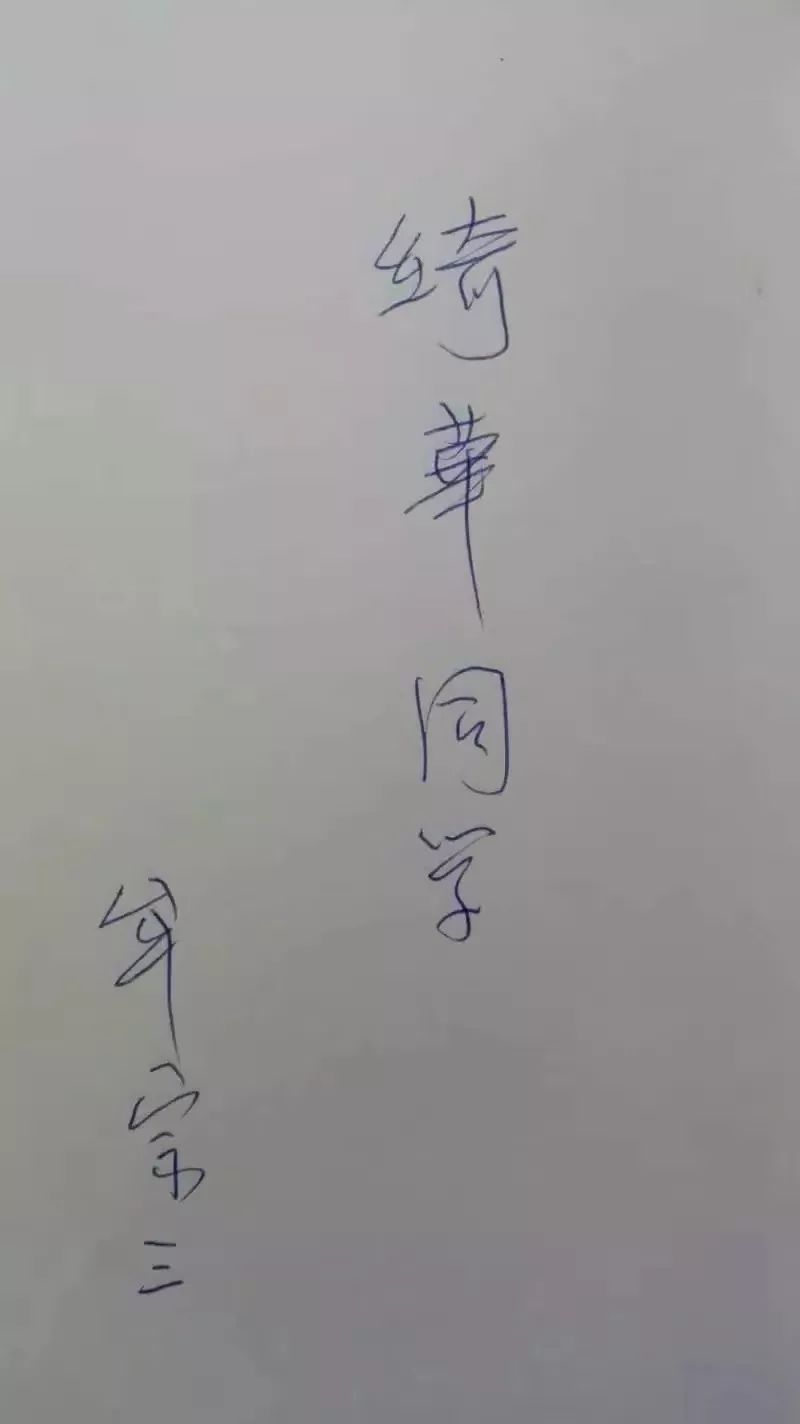 綺華同学
牟宗三